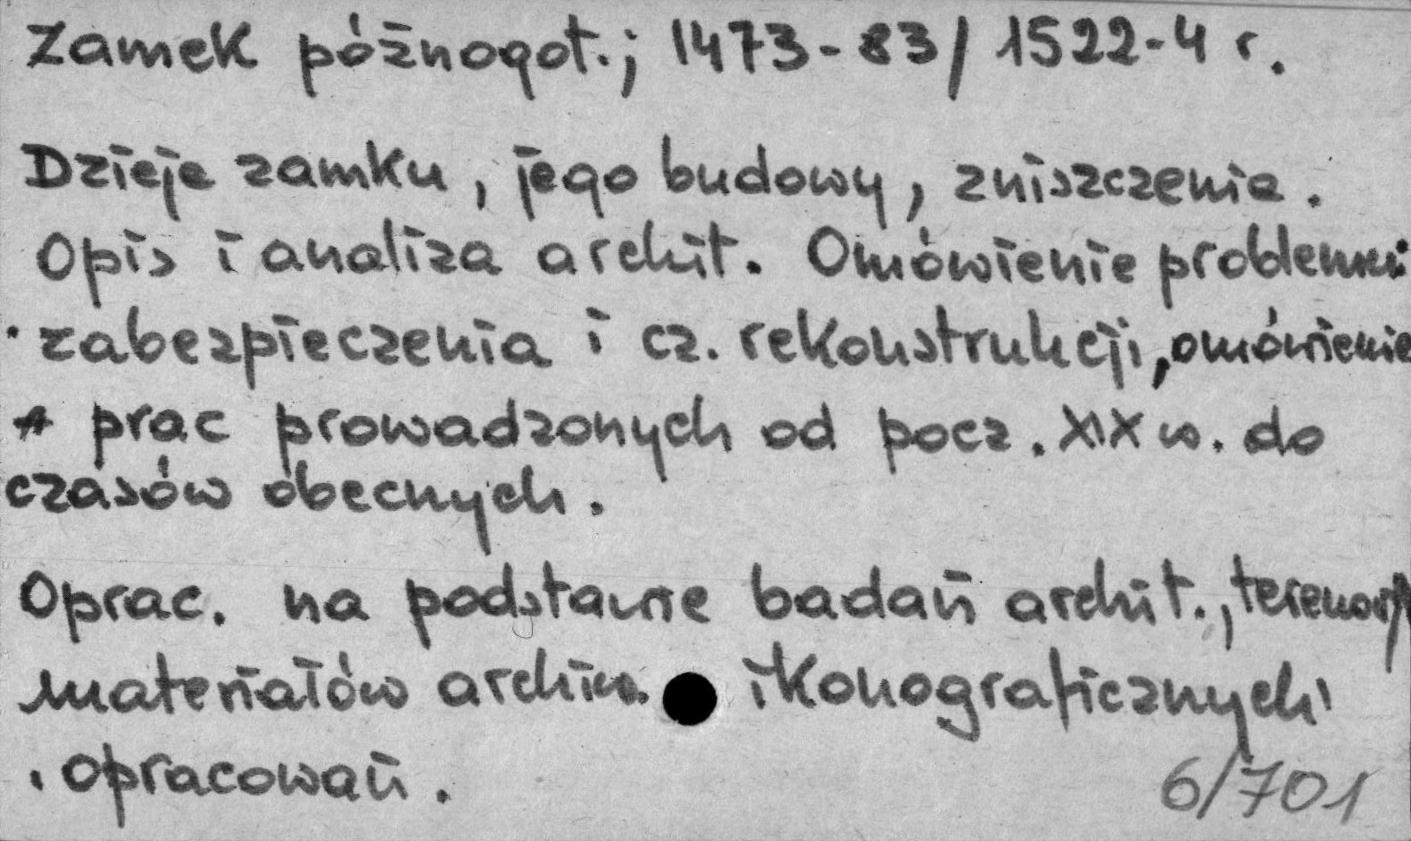 Zamek późnogot.; 1473-83/1522-4 r.
Dzieje zamku, jego budowy, zniszczenia.
Opis i analiza archit. Omówienie problemu
zabezpieczenia i cz. rekonstrukcji, omówienie
prac prowadzonych od pocz. XIX w. do
czasów obecnych.
Oprac. na podstawie badań archit.,
materiałów archiw. ikonograficznych
i opracowań.
6/701